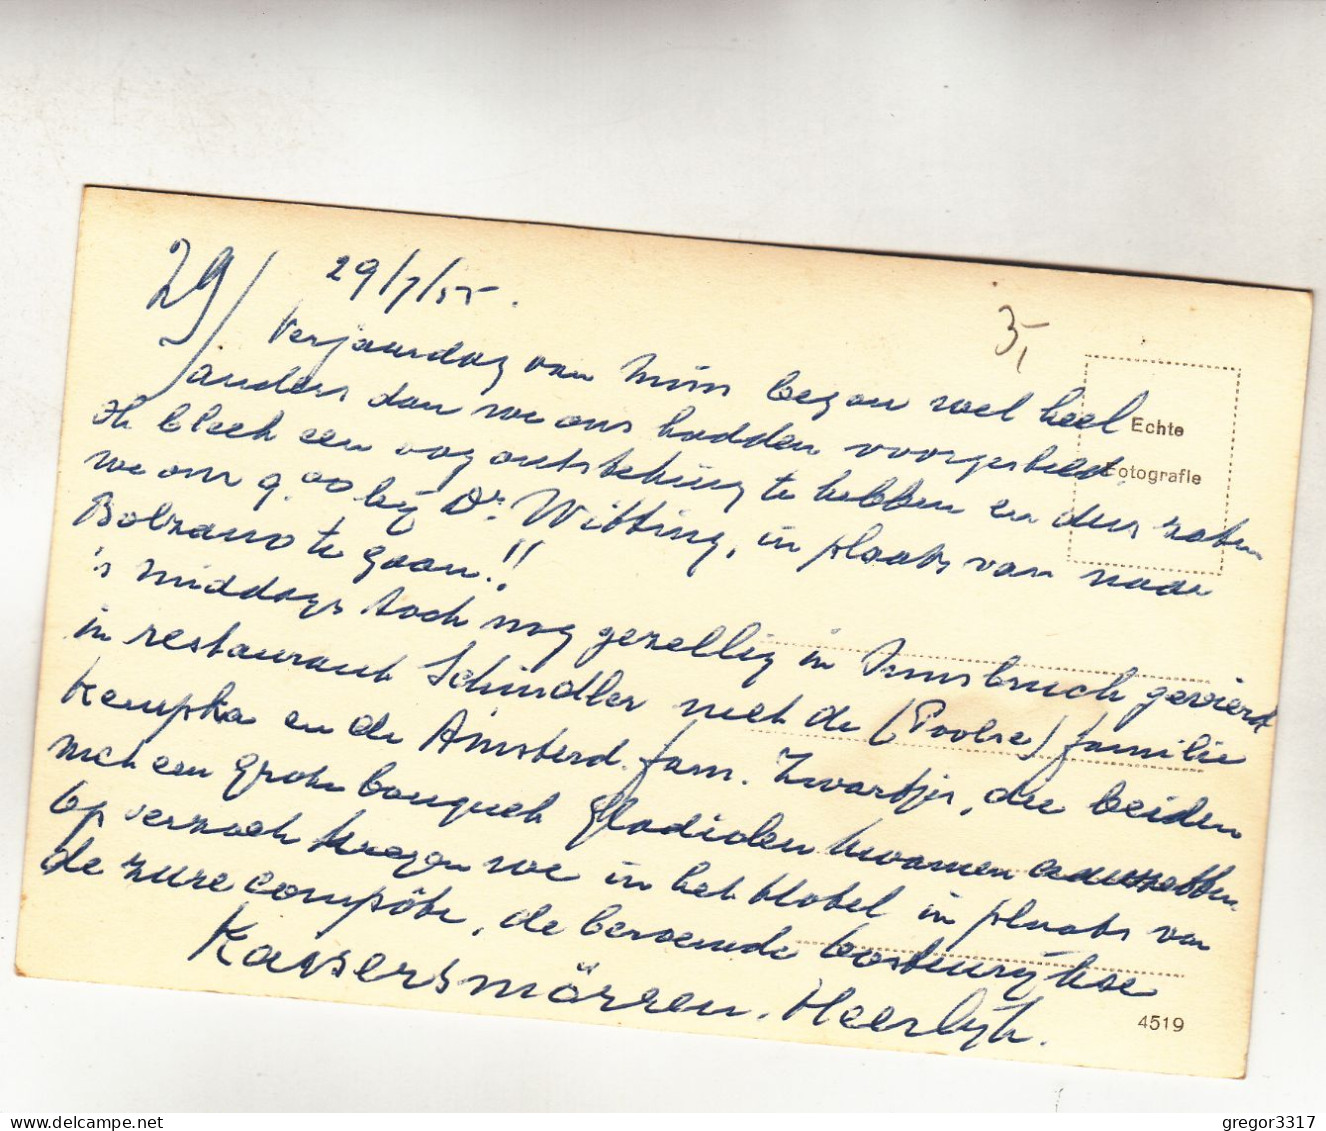 29/
29/7/55.
3,
Verjaardag van Mims begon wel heel
anders dan we ons hadden voorgesteld.
Ik bleek een oog ontsteking te hebben en dus zaten
we om 9.00 bij Dr. Witting, in plaats van naar
Bolzano te gaan!!
's middags toch nog gezellig in Innsbruck gevierd
in restaurant Schindler met de (Poolse) familie
Kempka en de Amsterd. fam. Zwartjes, die beiden
met een grote bouquet gladiolen kwamen aanzetten.
Op verzoek kregen we in het Hotel in plaats van
de zure compôte, de beroemde Oostenrijkse
Kaisersmörren. Heerlijk.
Echte
Fotografie
4519
gregor3317